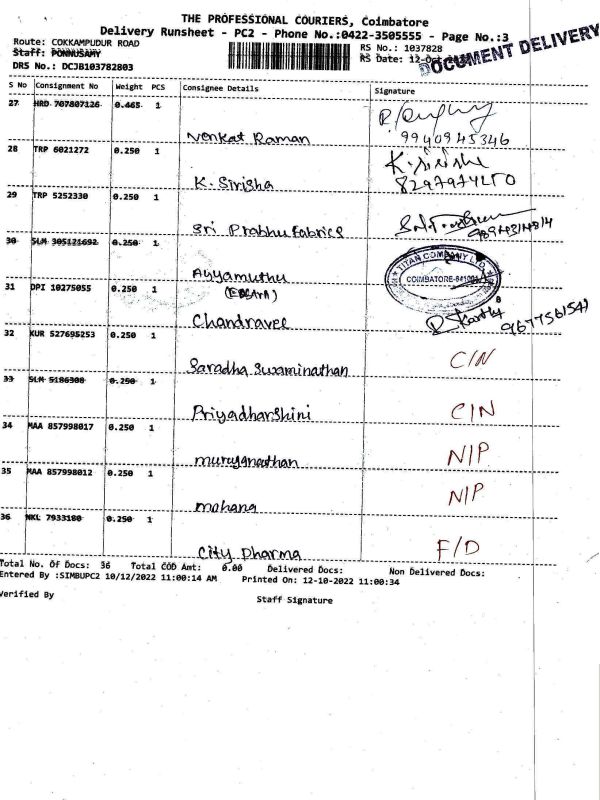 THE PROFESSIONAL COURIERS, Coimbatore
Delivery Runsheet - PC2 - Phone No.:0422-3505555 - Page No.:3
DOCUMENT DELIVERY
Route: COKKAMPUDUR ROAD
RS No.: 1037828
Staff: PONNUSAMY
RS Date: 12-Oct
DRS No.: DCJB103782803
S No Consignment No Weight PCS Consignee Details Signature
27 HRD 707807126 0.465 1
Venkat Raman 9940945346
28 TRP 6021272 0.250 1 K. Sirisha
K. Sirisha
29 TRP 5252330 0.250 1
Sri Prabhu Fabrics
30 SLM 305121692 0.250 1
TITAN COMPANY LTD.
COIMBATORE-641001
Ayyamuthu
31 DPI 10275055 0.250 1
Chandravel 9677561541
32 KUR 527695253 0.250 1
Saradha Swaminathan C/N
33 SLM 5186308 0.250 1
Priyadharshini C/N
34 MAA 857998017 0.250 1
muruganathan N/P
35 MAA 857998012 0.250 1
mohana N/P
36 NKL 7933180 0.250 1
City Dharma F/D
Total No. Of Docs: 36 Total COD Amt: 0.00 Delivered Docs: Non Delivered Docs:
Entered By :SIMBUPC2 10/12/2022 11:00:14 AM Printed On: 12-10-2022 11:00:34
Verified By
Staff Signature